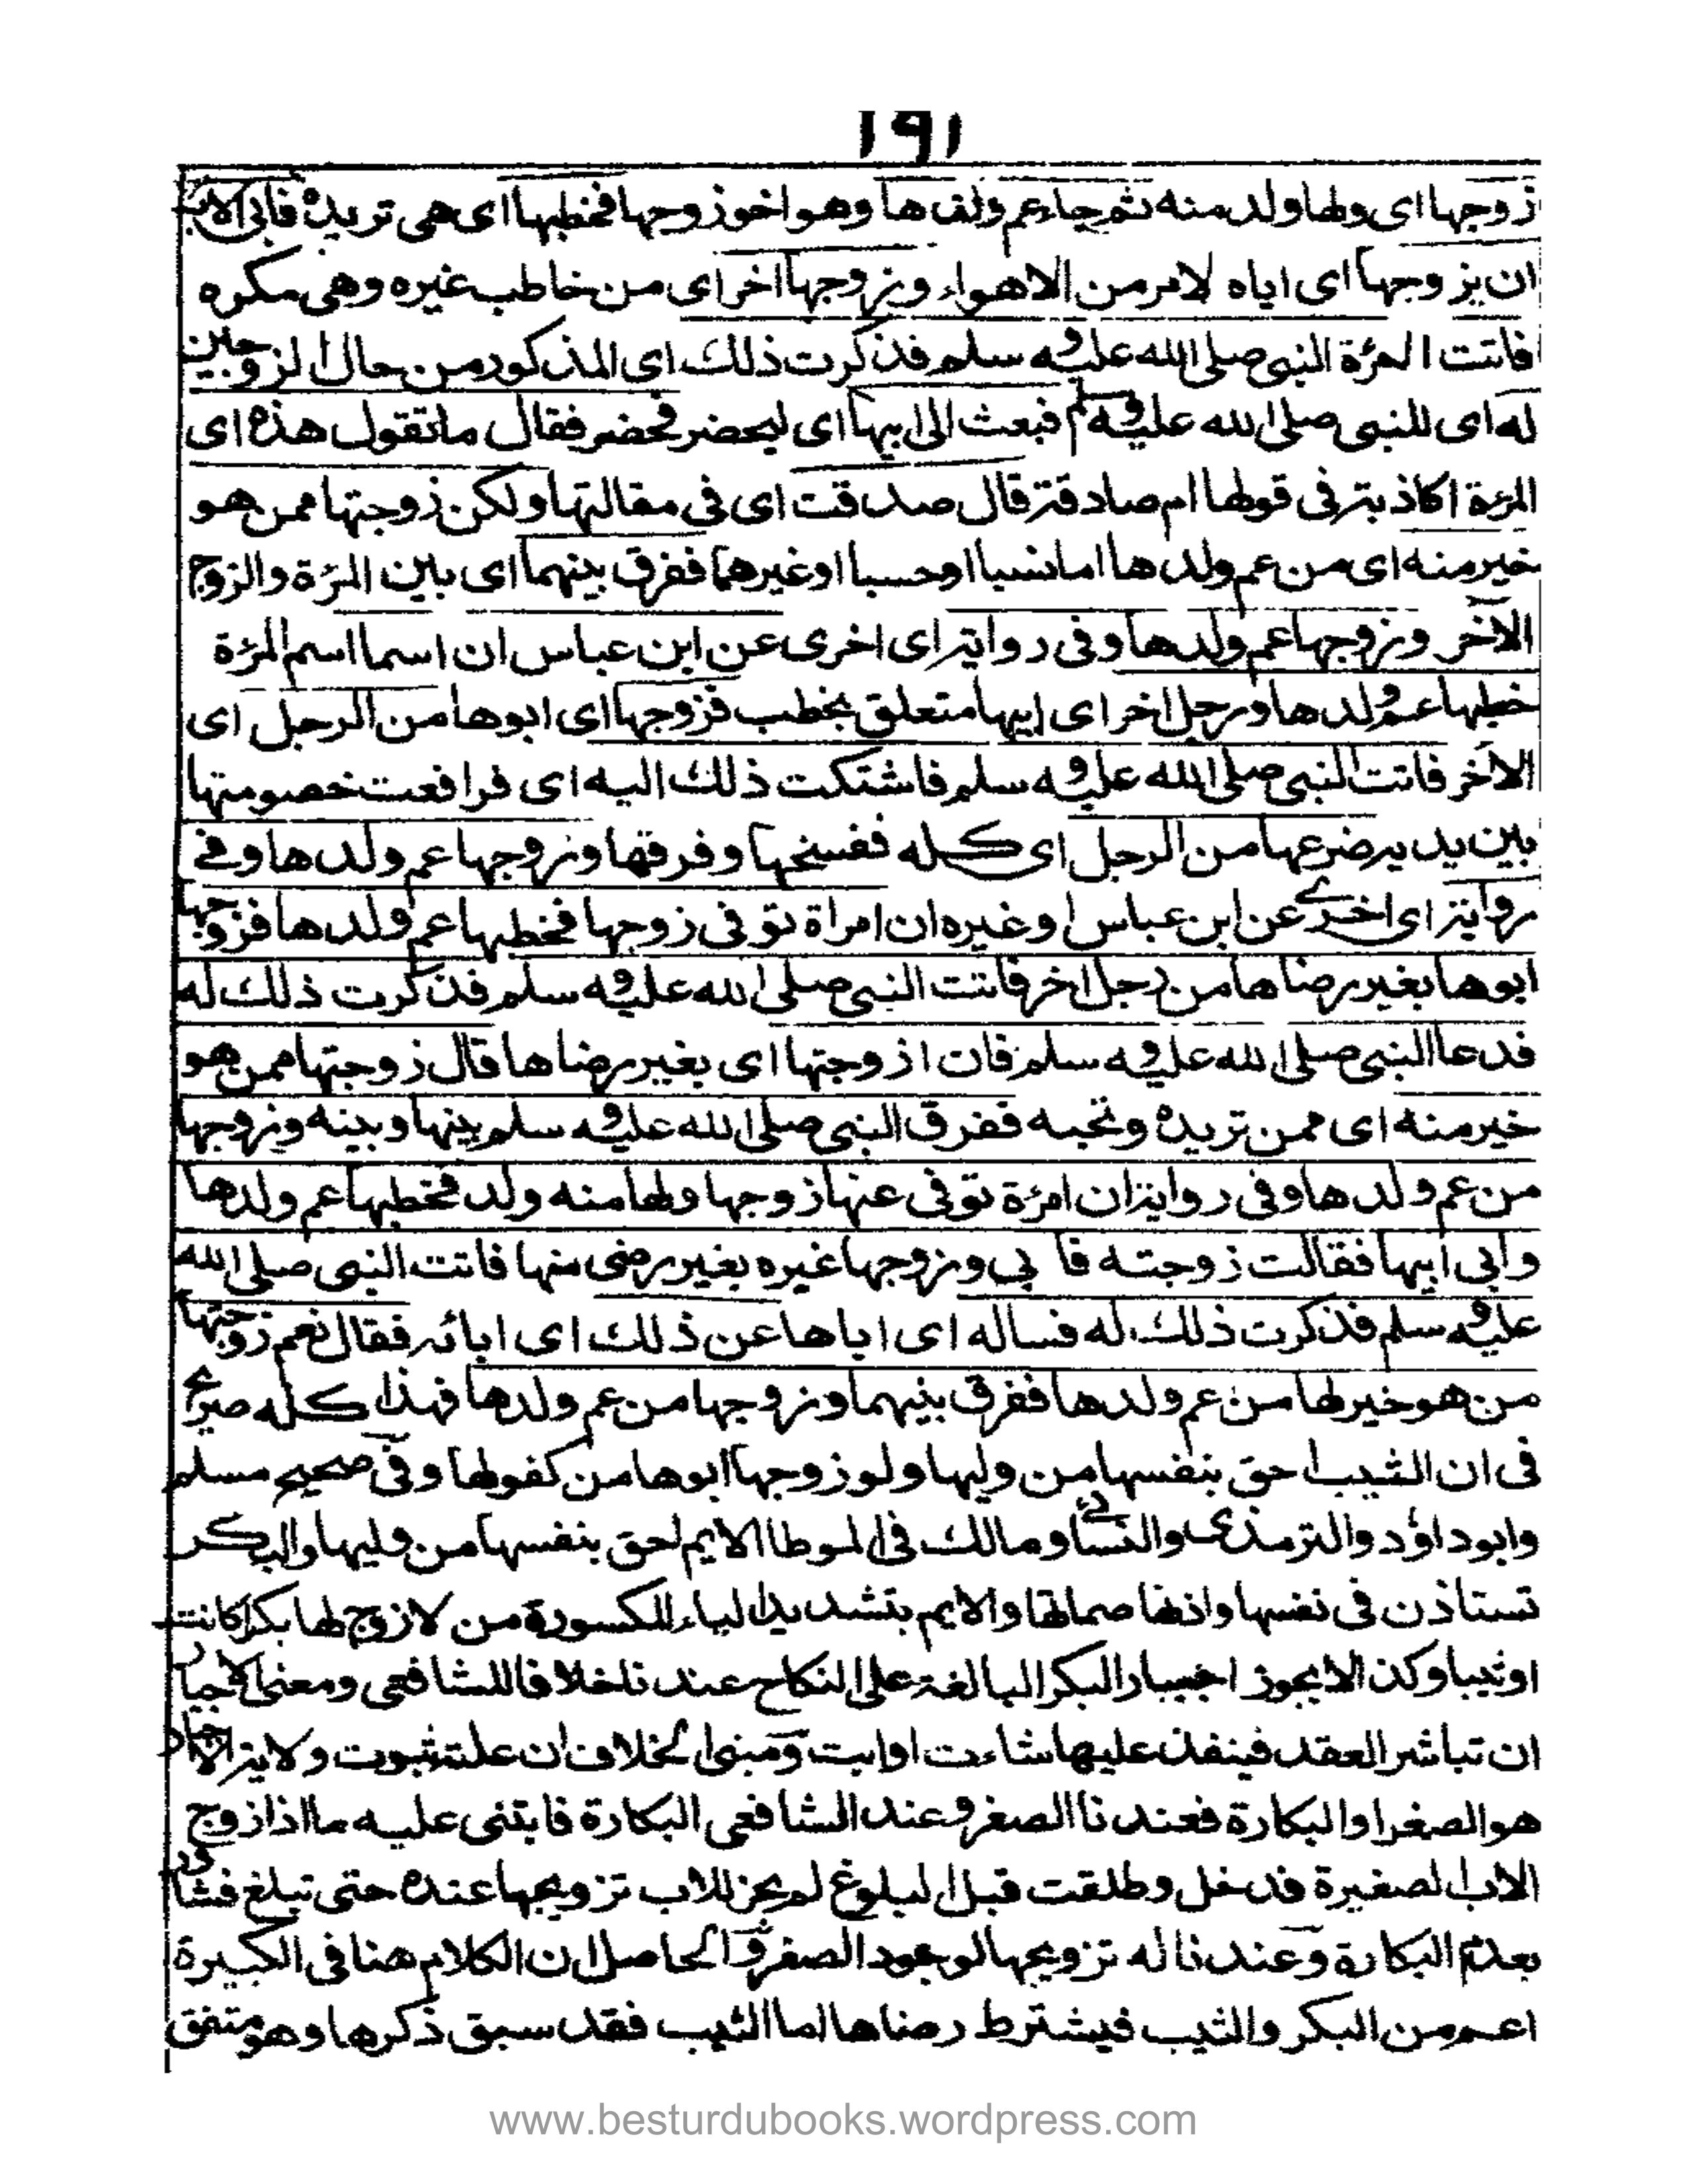 ١٩١
زوجها اى ولها ولد منه ثم جاء عم ولدها وهو اخو زوجها فخطبها اى هى تريده فابى الاب
ان يزوجها اى اياه لامر من الاهواء وزوجها اخر اى من خاطب غيره وهى مكره
فاتت المرءة النبى صلى الله عليه وسلم فذكرت ذلك اى المذكور من حال الزوجين
له اى للنبى صلى الله عليه وسلم فبعث الى ابيها اى ليحضر فحضر فقال ما تقول هذه اى
المرءة اكاذبة فى قولها ام صادقة قال صدقت اى فى مقالتها ولكن زوجتها ممن هو
خير منه اى من عم ولدها اما نسبا او حسبا او غيرهما ففرق بينهما اى بين المرءة والزوج
الآخر وزوجها عم ولدها وفى رواية اى اخرى عن ابن عباس ان اسما اسم المرءة
خطبها عم ولدها ورجل اخر اى ابيها متعلق بخطب فزوجها اى ابوها من الرجل اى
الآخر فاتت النبى صلى الله عليه وسلم فاشتكت ذلك اليه اى فرافعت خصومتها
بين يديه فنزعها من الرجل اى كله ففسخها وفرقها وزوجها عم ولدها وفے
رواية اى اخرے عن ابن عباس وغيره ان امراة توفى زوجها فخطبها عم ولدها فزوجها
ابوها بغير رضاها من رجل اخر فاتت النبى صلى الله عليه وسلم فذكرت ذلك له
فدعا النبى صلى الله عليه وسلم فان ازوجتها اى بغير رضاها قال زوجتها ممن هو
خير منه اى ممن تريده وتحبه ففرق النبى صلى الله عليه وسلم بينها وبينه وزوجها
من عم ولدها وفى رواية ان امرءة توفى عنها زوجها ولها منه ولد فخطبها عم ولدها
وابى ابيها فقالت زوجته فا بى وزوجها غيره بغير رضى منها فاتت النبى صلى الله
عليه وسلم فذكرت ذلك له فساله اى اباها عن ذلك اى ابائه فقال نعم زوجتها
من هو خير لها من عم ولدها ففرق بينهما وزوجها من عم ولدها فهذا كله صريح
فى ان الثيب احق بنفسها من وليها ولو زوجها ابوها من كفو لها وفى صحيح مسلم
وابو داؤد والترمذى والنسائے ومالك فى الموطا الايم احق بنفسها من وليها والبكر
تستاذن فى نفسها واذنها صماتها والايم بتشديد الياء المكسورة من لا زوج لها بكرا كانت
او ثيبا وكذا لا يجوز اجبار البكر البالغة على النكاح عندنا خلافا للشافعى ومعنى الاجبار
ان تباشر العقد فينفذ عليها شاءت او ابت ومبنى الخلاف ان علة ثبوت ولاية الاجبار
هو الصغر او البكارة فعندنا الصغر وعند الشافعى البكارة فابتنى عليه ما اذا زوج
الاب الصغيرة فدخل وطلقت قبل البلوغ لم يجز للاب تزويجها عنده حتى تبلغ فتشاور
بعدم البكارة وعندنا له تزويجها لوجود الصغر والحاصل ان الكلام هنا فى الكبيرة
اعم من البكر والثيب فيشترط رضاها اما الثيب فقد سبق ذكرها وهو متفق
www.besturdubooks.wordpress.com